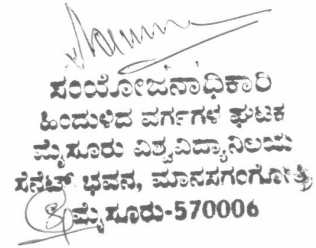 ಸಂಯೋಜನಾಧಿಕಾರಿ
ಹಿಂದುಳಿದ ವರ್ಗಗಳ ಘಟಕ
ಮೈಸೂರು ವಿಶ್ವವಿದ್ಯಾನಿಲಯ
ಸೆನೆಟ್ ಭವನ, ಮಾನಸಗಂಗೋತ್ರಿ
ಮೈಸೂರು-570006